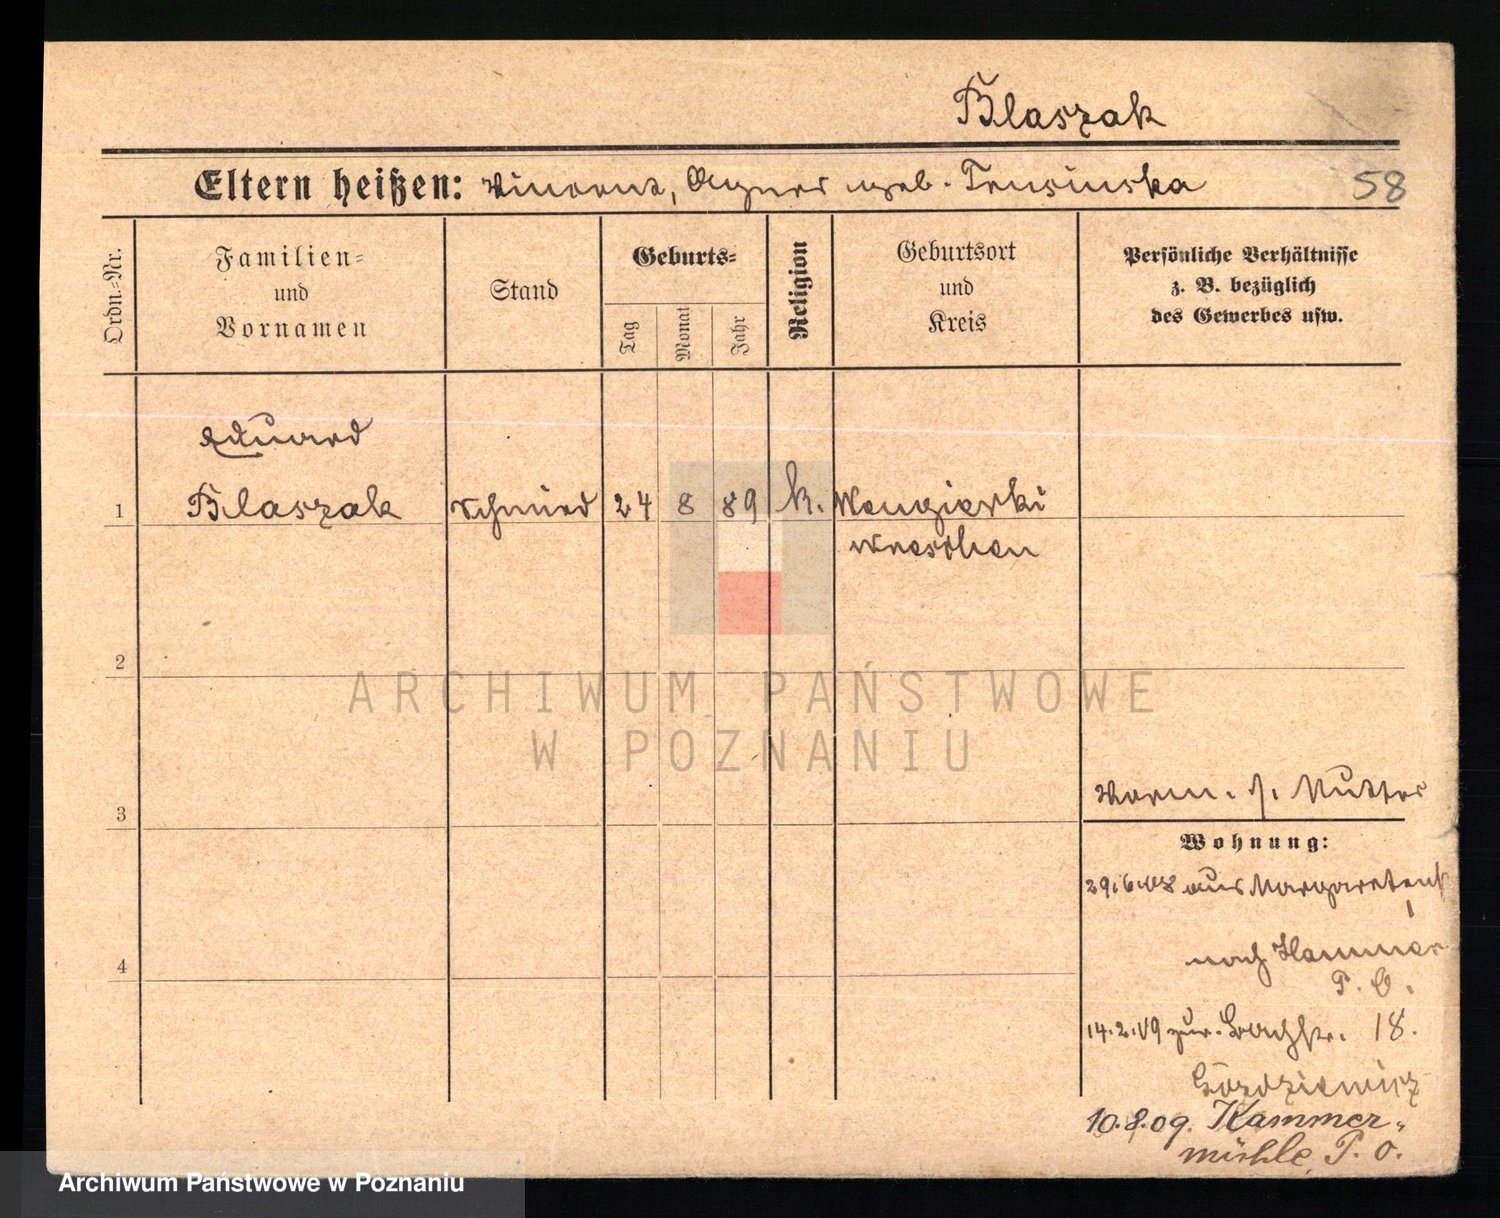 Blaszak
Eltern heißen: Vincent, Agnes geb. Trusinska
58
Ordn.-Nr.
Familien-
und
Vornamen
Stand
Geburts-
Tag
Monat
Jahr
Religion
Geburtsort
und
Kreis
Persönliche Verhältnisse
z. B. bezüglich
des Gewerbes usw.
Eduard
1 Blaszak Schmied 24 8 89 k. Wengierki
Wreschen
2
ARCHIWUM PAŃSTWOWE
W POZNANIU
3
Vorm. s. Mutter
Wohnung:
29.6.08 aus Margaretenst
4
nach Hammer
P. O.
14.2.09 zur. Bachstr. 18.
10.8.09. Hammer-
mühle, P. O.
Archiwum Państwowe w Poznaniu